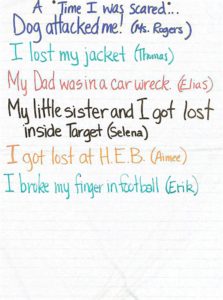 A "Time I was scared"...
Dog attacked me! (Ms. Rogers)
I lost my jacket (Thomas)
My Dad was in a car wreck. (Elias)
My little sister and I got lost
inside Target (Selena)
I got lost at H.E.B. (Aimee)
I broke my finger in football (Erik)